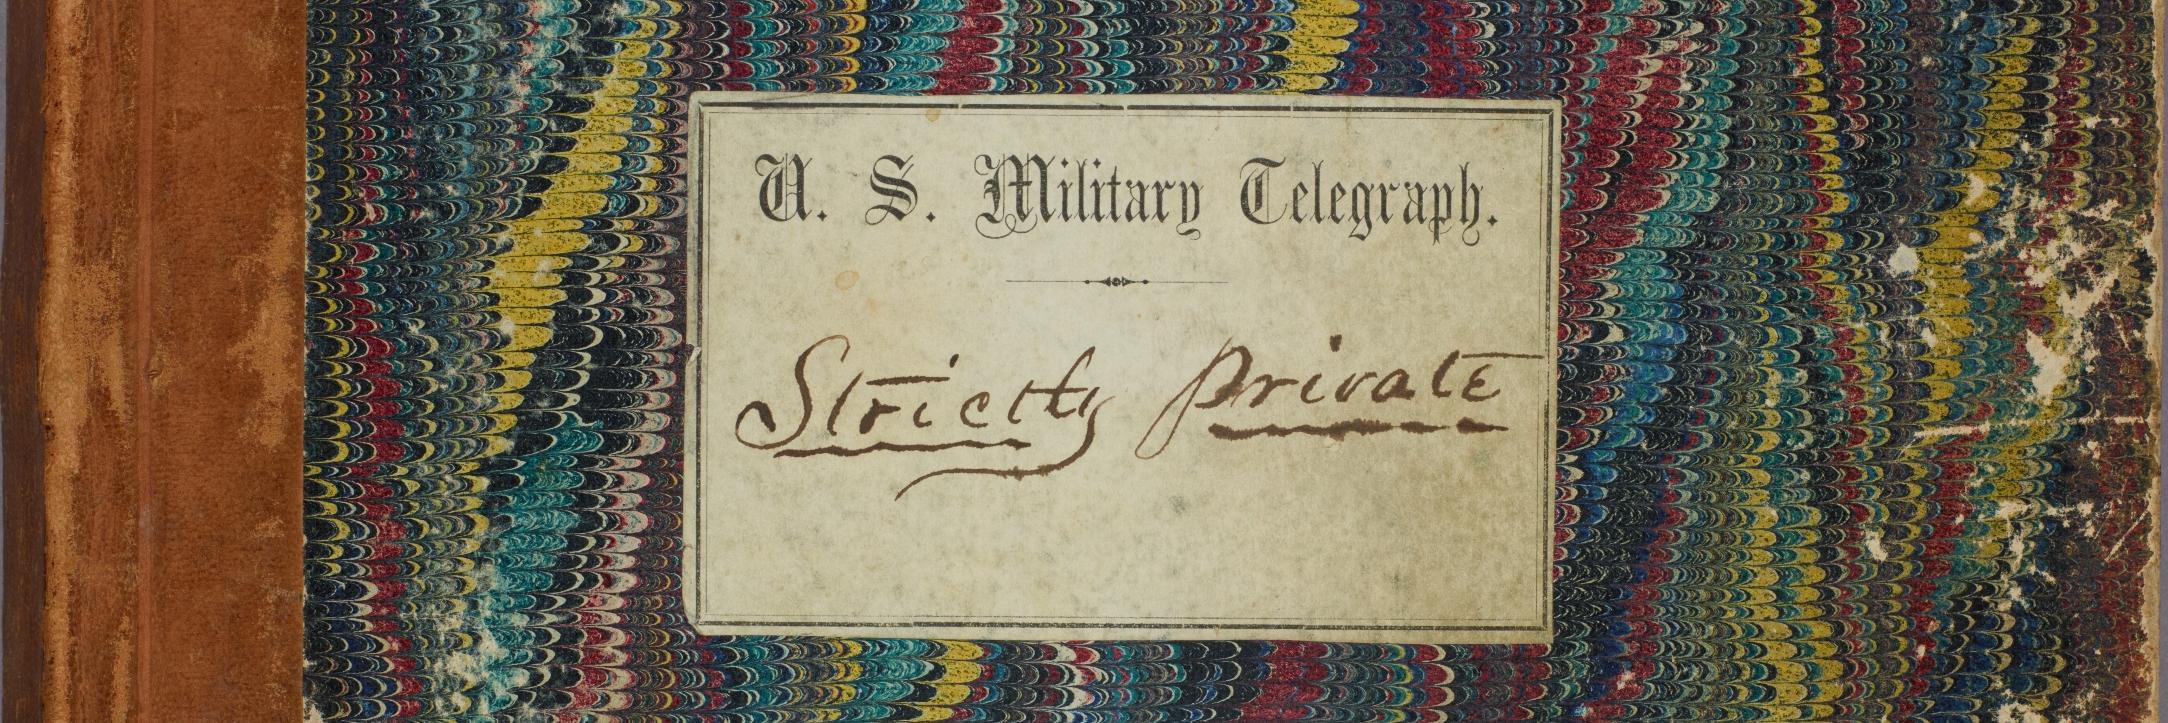 U. S. Military Telegraph.
Strictly Private